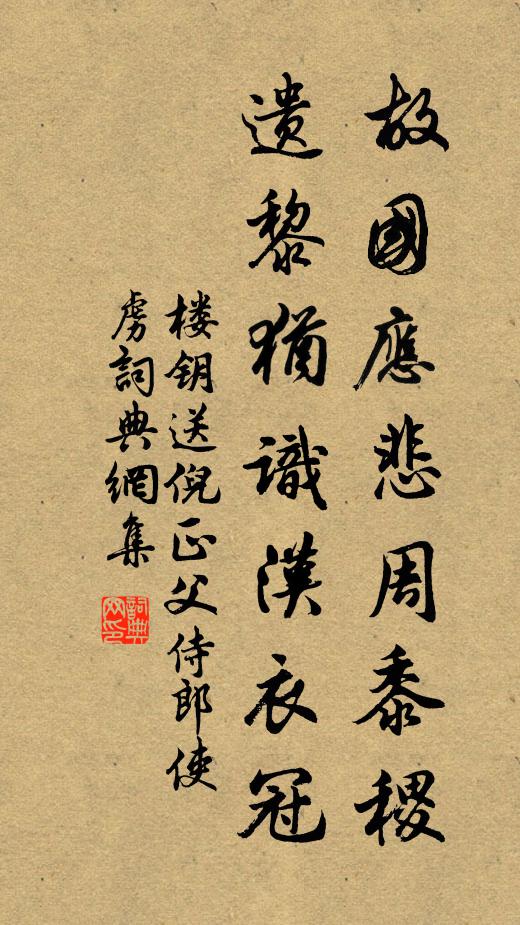 故國應悲周黍稷
遺黎猶識漢衣冠
楼钥送倪正父侍郎使
虏詞典網集
詞典网印